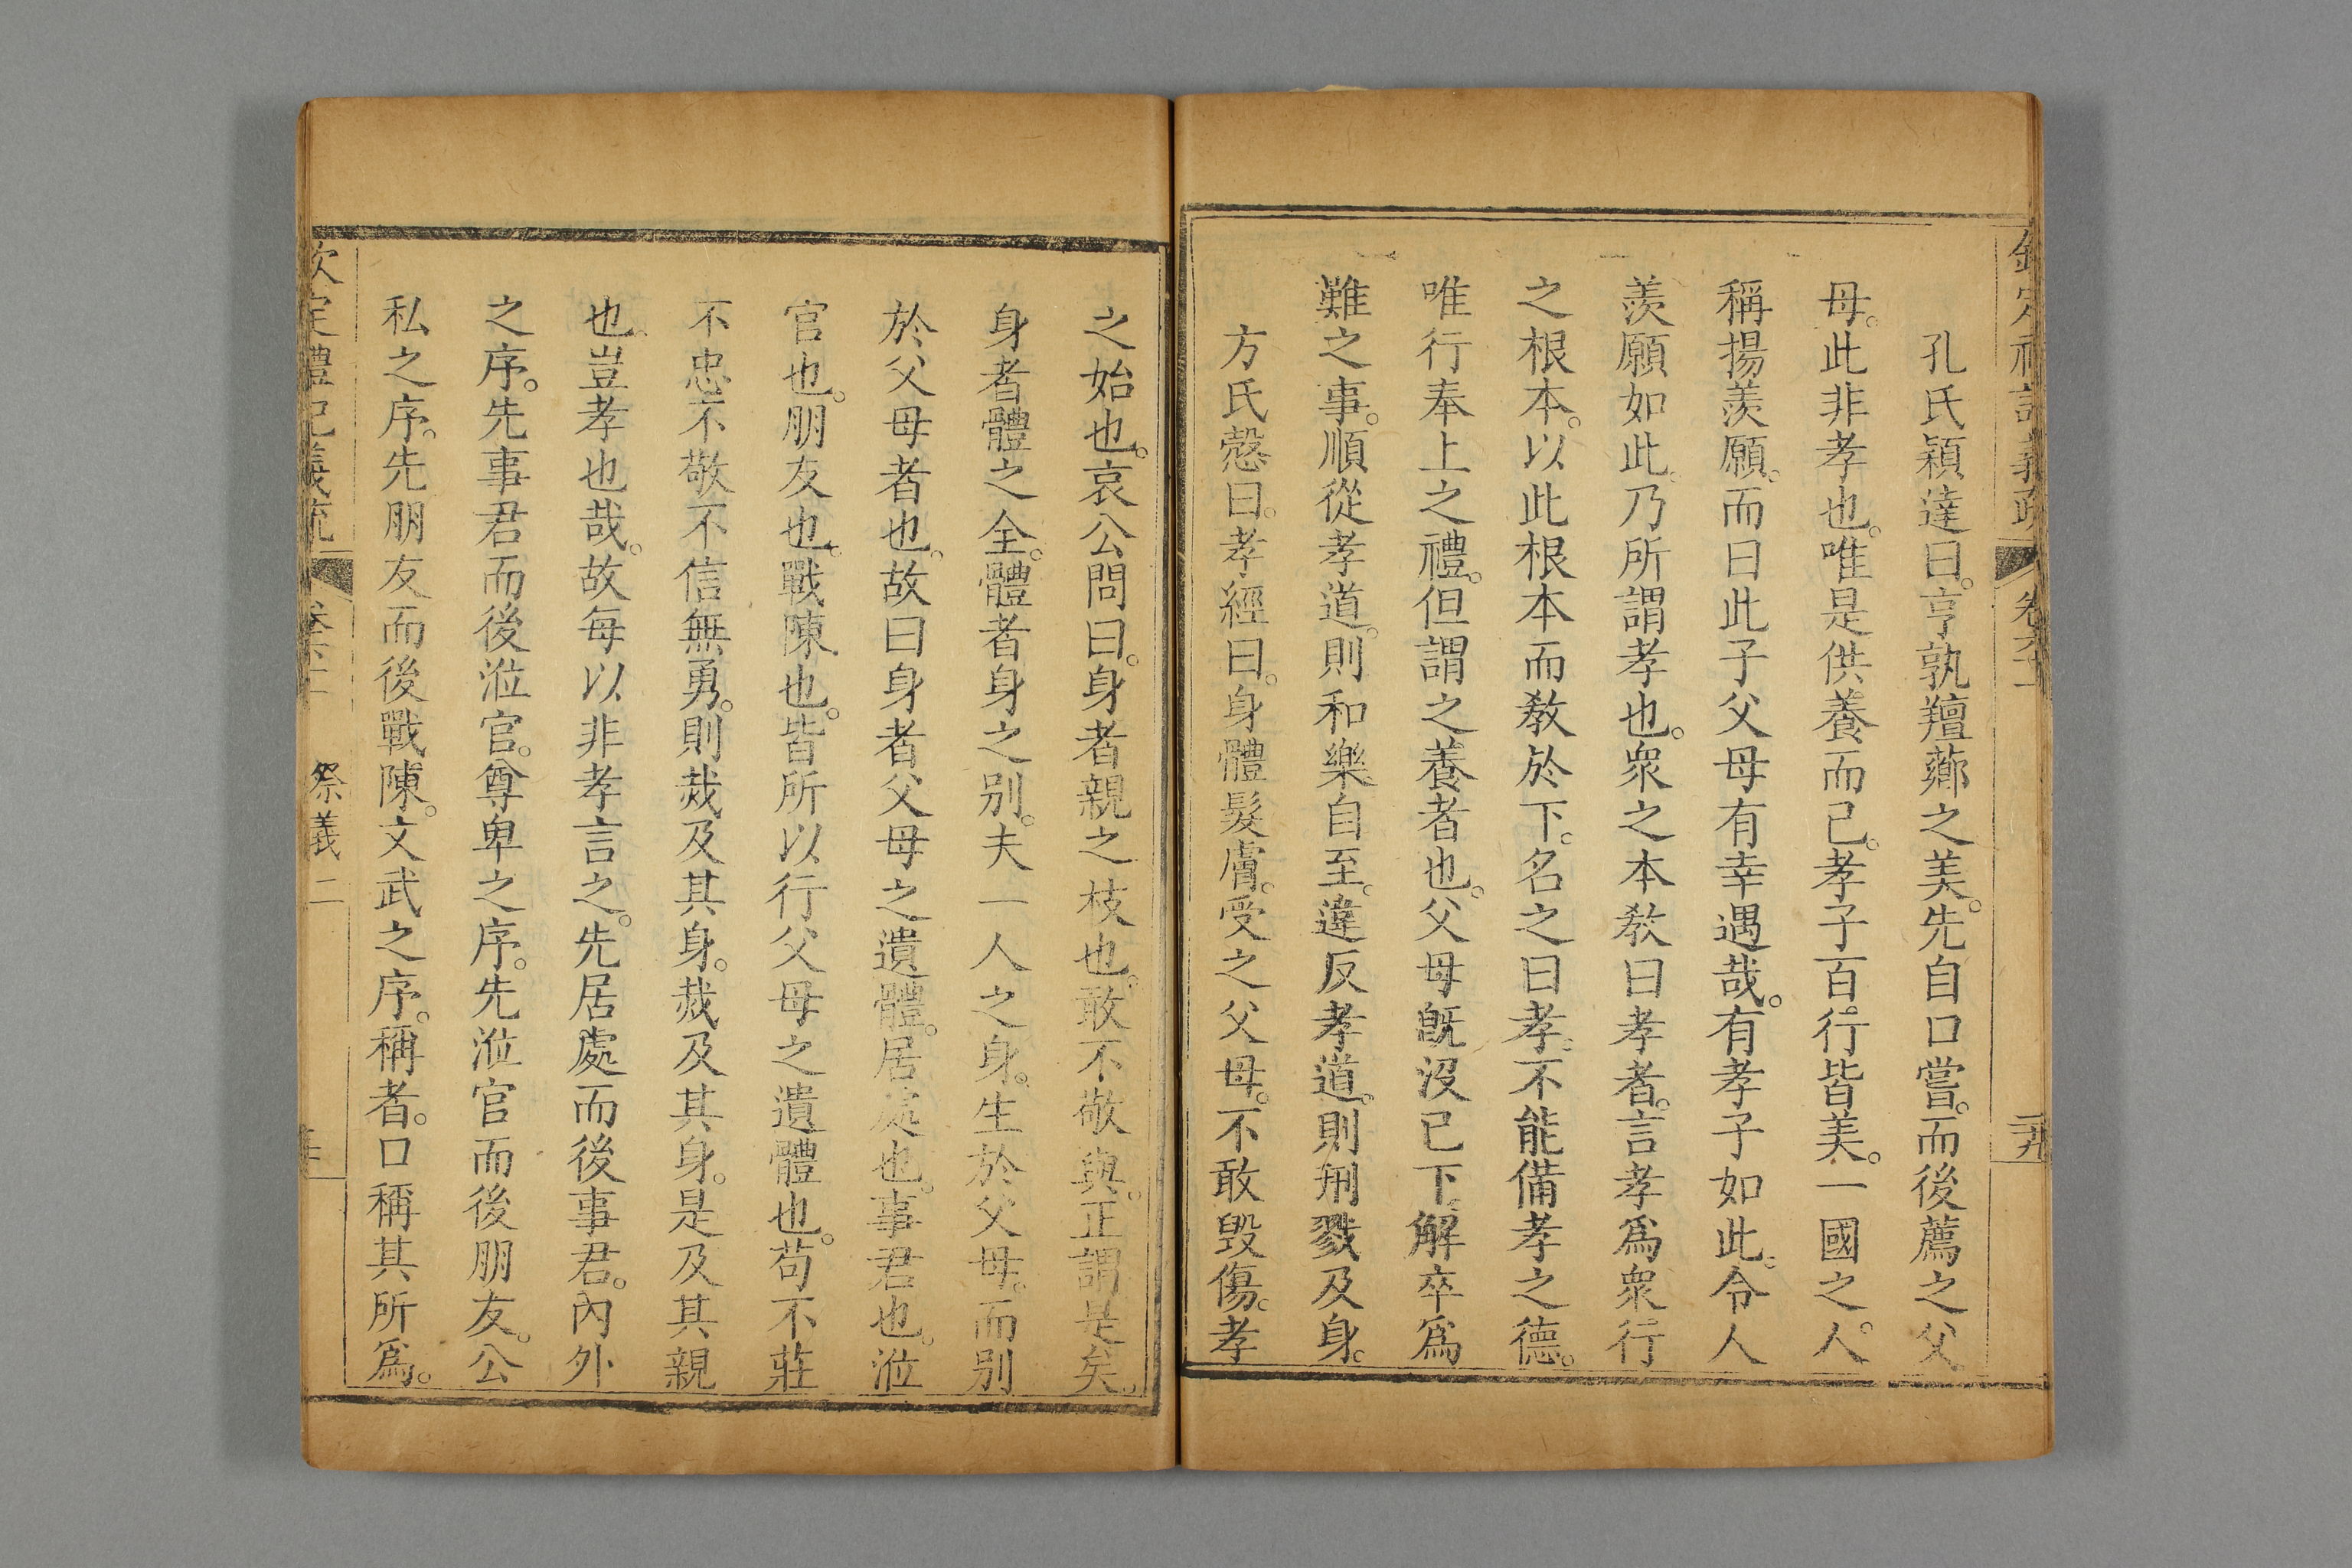 欽定禮記義疏 卷六十二 二十九
孔氏穎達曰。亨孰羶薌之美。先自口嘗。而後薦之父
母。此非孝也。唯是供養而已。孝子百行皆美。一國之人。
稱揚羨願。而曰此子父母有幸遇哉。有孝子如此。令人
羨願如此。乃所謂孝也。衆之本敎曰孝者。言孝爲衆行
之根本。以此根本而敎於下。名之曰孝。不能備孝之德。
唯行奉上之禮。但謂之養者也。父母旣沒已下。解卒爲
難之事。順從孝道。則和樂自至。違反孝道。則刑戮及身。
方氏慤曰。孝經曰。身體髮膚。受之父母。不敢毀傷。孝
之始也。哀公問曰。身者親之枝也。敢不敬與。正謂是矣。
身者體之全。體者身之別。夫一人之身。生於父母。而別
於父母者也。故曰身者父母之遺體。居處也。事君也。涖
官也。朋友也。戰陳也。皆所以行父母之遺體也。苟不莊
不忠不敬不信無勇。則烖及其身。烖及其身。是及其親
也。豈孝也哉。故每以非孝言之。先居處而後事君。內外
之序。先事君而後涖官。尊卑之序。先涖官而後朋友。公
私之序。先朋友而後戰陳。文武之序。稱者。口稱其所爲。
欽定禮記義疏 卷六十二 祭義二